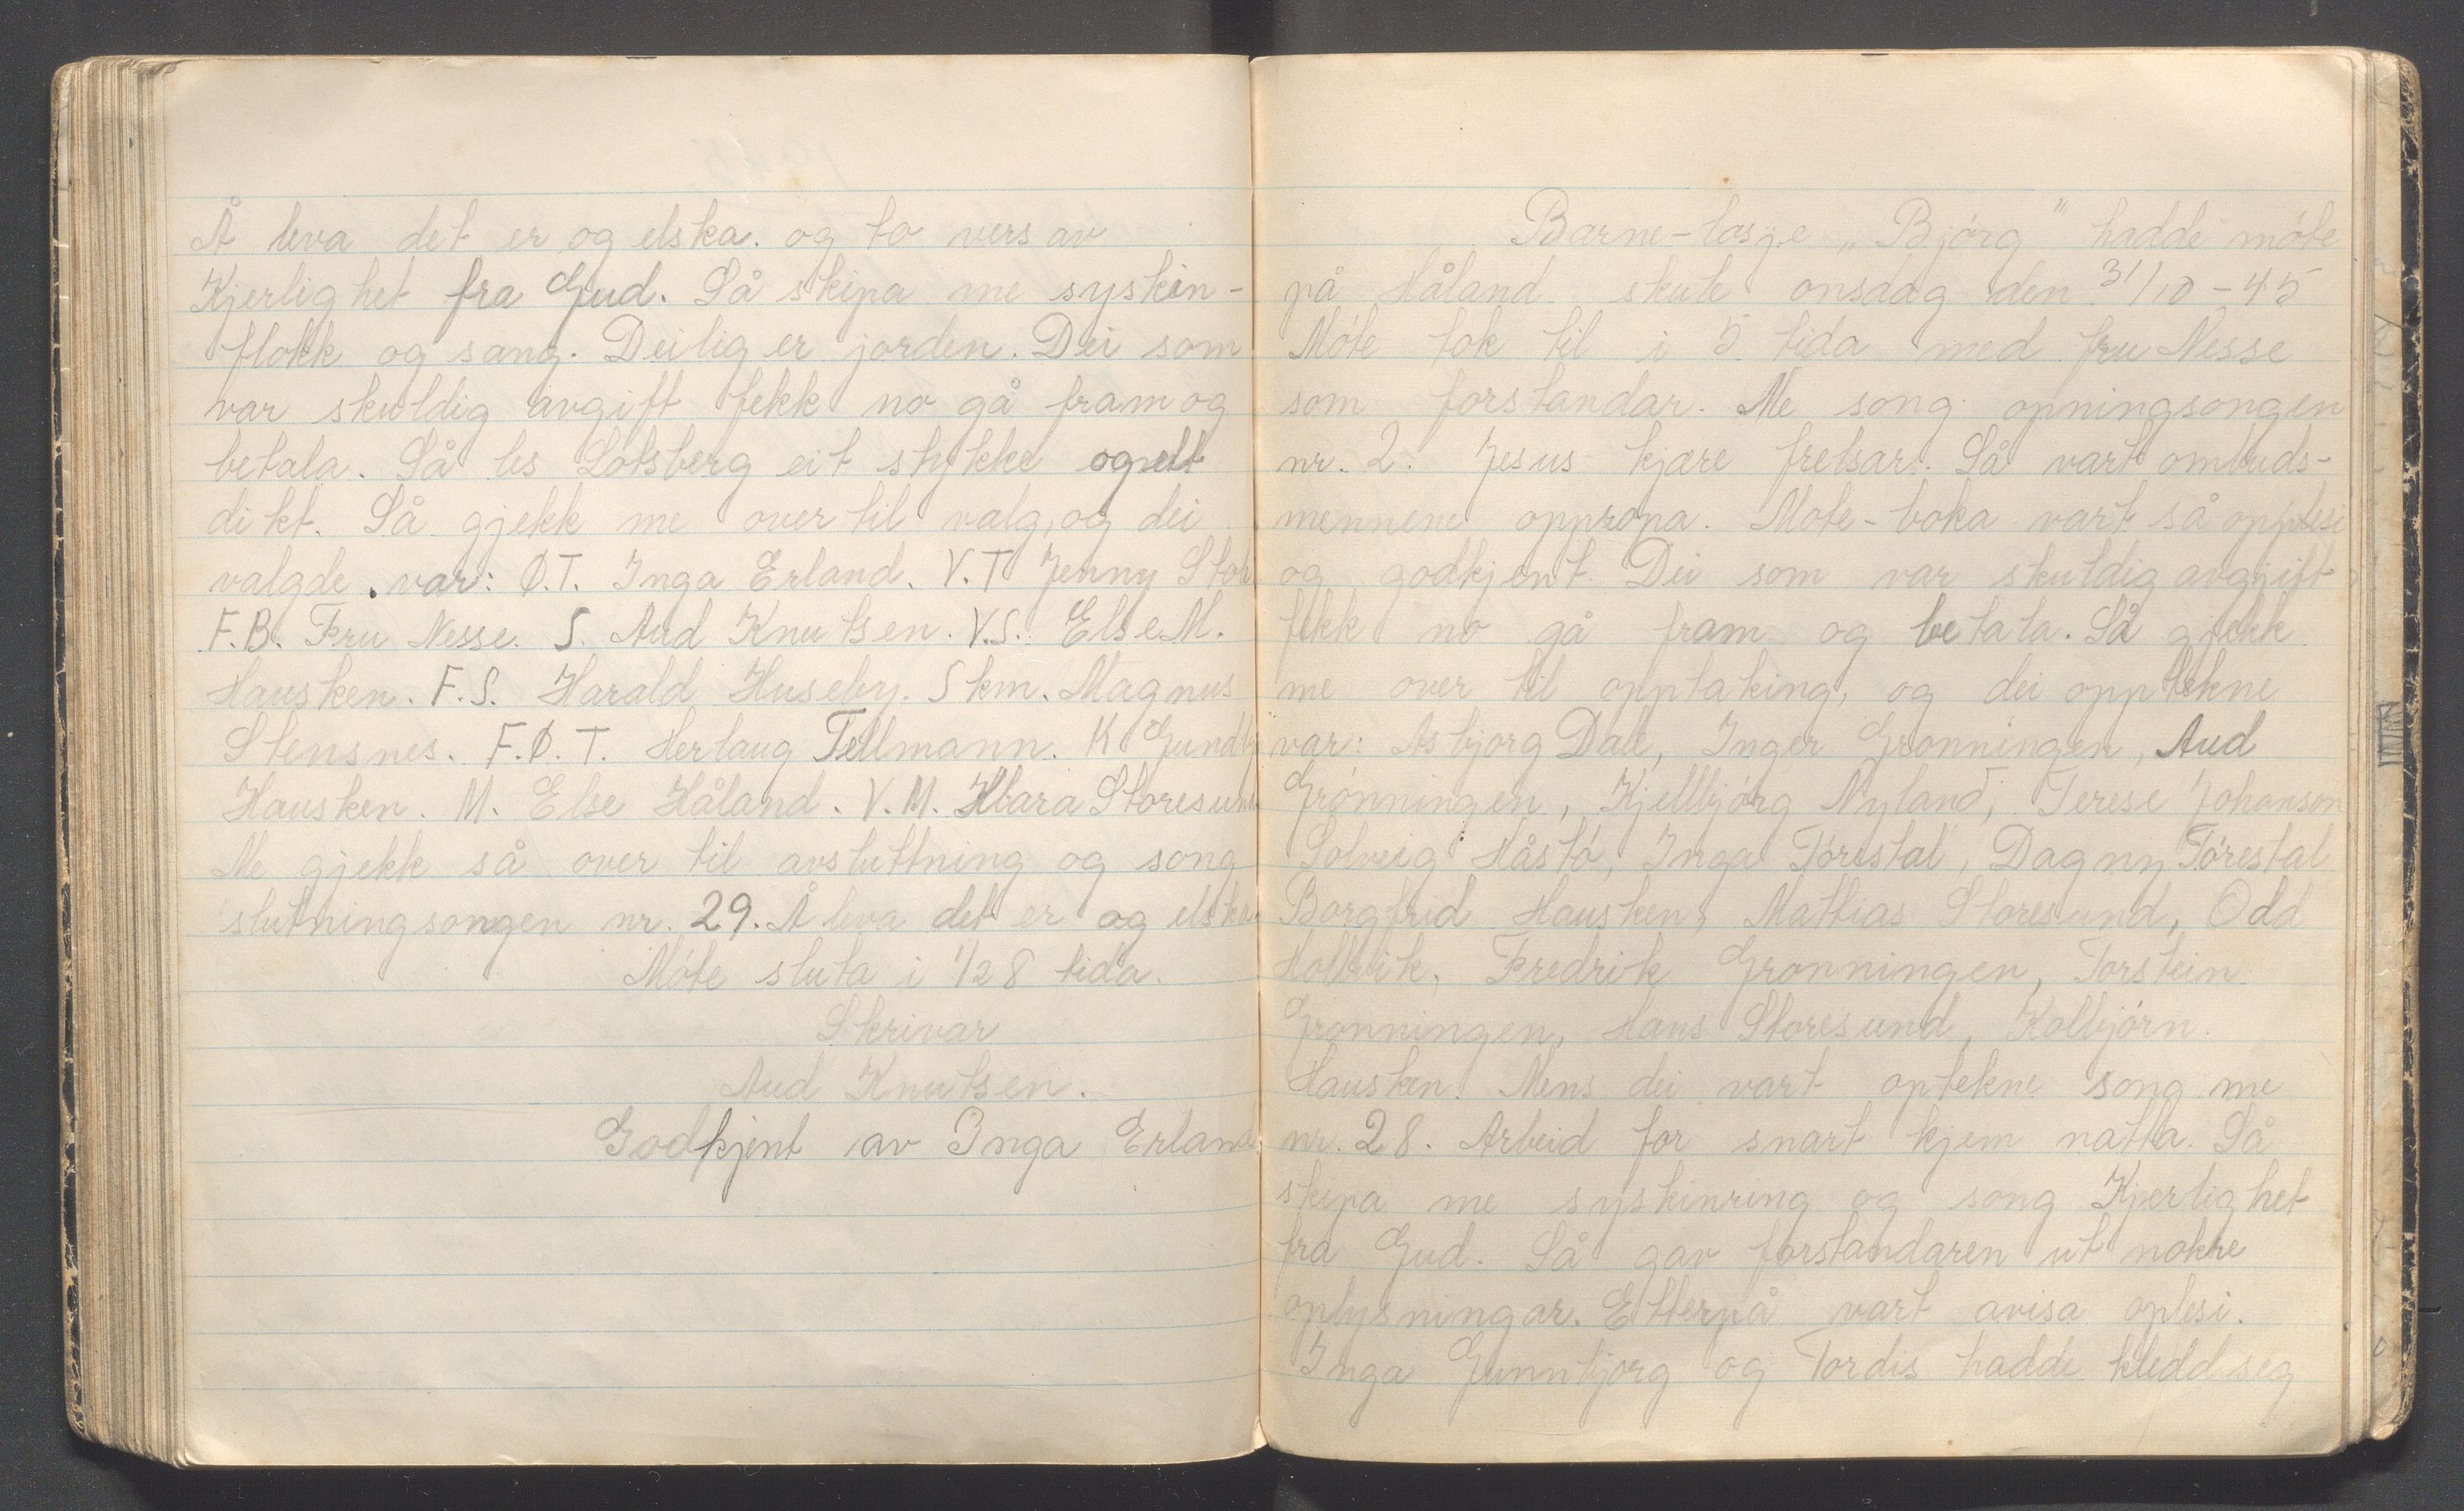 Å leva det er og elska. og to vers av
Kjerlighet fra Gud. Så skipa me syskin-
flokk og sang. Deilig er jorden. Dei som
var skuldig avgift fekk no gå fram og
betala. Så les Lotsberg eit stykke og eit
dikt. Så gjekk me over til valg, og dei
valgde var: Ø.T. Inga Erland. V.T. Jenny
F.B. Fru Nesse. S. Aud Knutsen. V.S. Else M.
Hausken. F.S. Harald Huseby. Skm. Magnus
Stensnes. F.Ø.T. Herlaug Tellmann. K
Hausken. M. Else Håland. V.M. Klara Storesund
Me gjekk så over til avsluttning og song
slutningsongen nr. 29. Å leva det er og elska
Móte sluta i 1/2 8 tida.
Skrivar
Aud Knutsen.
Godkjent av Inga Erland
Barne-losje „Bjórg" hadde móte
på Håland skule onsdag den 31/10 - 45
Móte tok til i 5 tida med fru Nesse
som forstandar. Me song opningsongen
nr. 2. Jesus kjære frelsar. Så vart ombuds-
mennene oppropa. Mote-boka vart så opplesi
og godkjent. Dei som var skuldig avgjift
fekk no gå fram og betala. Så gjekk
me over til opptaking, og dei opptekne
var: Asbjorg Dale, Inger Gronningen, Aud
Grónningen, Kjellbjórg Nyland, Terese Johanson
Solveig Håstó, Inga Tórestal, Dagny Tórestal
Borgfrid Hausken, Mattias Storesund, Odd
Holtvik, Fredrik Gronningen, Torstein
Gronningen, Hans Storesund, Kolbjórn.
Hausken. Mens dei vart optekne song me
nr. 28. Arbeid for snart kjem natta. Så
skipa me syskinring og song Kjerlighet
fra Gud. Så gav forstandaren ut nokre
oplysningar. Etterpå vart avisa oplesi.
Inga Gunnbjorg og Tordis hadde kledd seg